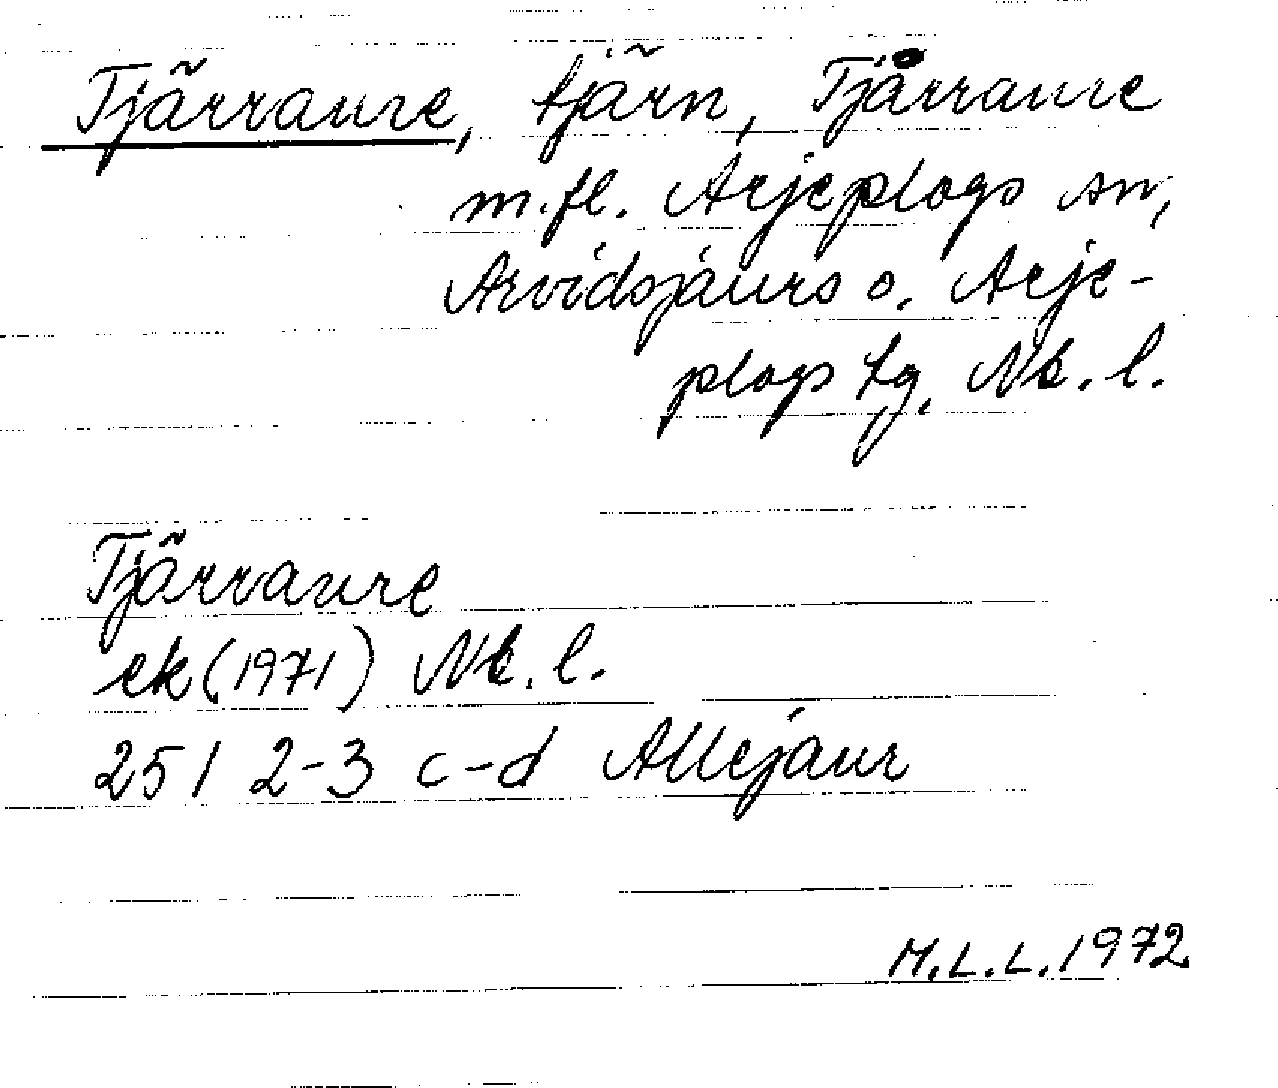 Tjärraure, tjärn, Tjårraure
m.fl. Arjeplogs sn,
Arvidsjaurs o. Arje-
plogs tg. Nb. l.
Tjärraure
ek (1971) Nb. l.
25 I 2-3 c-d Allejaur
M.L.L. 1972